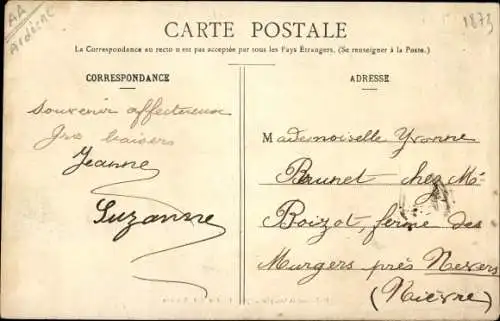 AA
Ardèche
1873
CARTE POSTALE
La Correspondance au recto n'est pas acceptée par tous les Pays Étrangers. (Se renseigner à la Poste.)
CORRESPONDANCE
souvenir affectueuse
Gros baisers
Jeanne
Suzanne
ADRESSE
Mademoiselle Yvonne
Brunet chez Mr
Boizot, ferme des
Murgers près Nevers
(Nièvre)